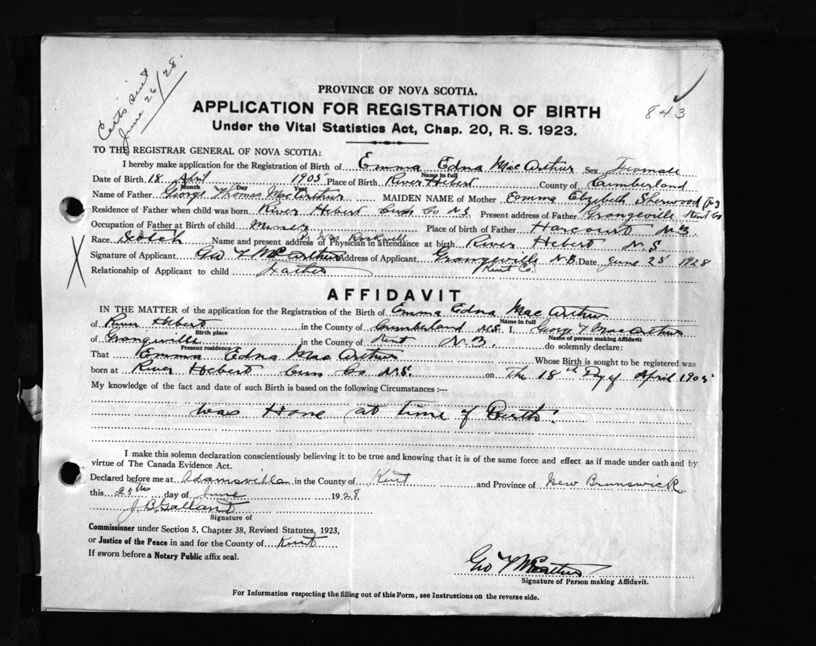 Certs sent
June 26/28.
PROVINCE OF NOVA SCOTIA.
APPLICATION FOR REGISTRATION OF BIRTH
843
Under the Vital Statistics Act, Chap. 20, R. S. 1923.
TO THE REGISTRAR GENERAL OF NOVA SCOTIA:
I hereby make application for the Registration of Birth of Emma Edna MacArthur Sex Female
Name in full
Date of Birth 18 April 1905 Place of Birth River Hebert County of Cumberland
Month Day Year
Name of Father George Thomas MacArthur MAIDEN NAME of Mother Emma Elizabeth Sherwood
Residence of Father when child was born River Hebert Cum Co N.S. Present address of Father Grangeville Kent Co
Occupation of Father at Birth of child Miner Place of birth of Father Harcourt N.B.
Race Scotch Name and present address of Physician in attendance at birth Rockwell River Hebert N.S.
Signature of Applicant Geo T McArthur Address of Applicant Grangeville N.B. Date June 25 1928
Kent Co.
Relationship of Applicant to child Father
AFFIDAVIT
IN THE MATTER of the application for the Registration of the Birth of Emma Edna MacArthur
Name in full
of River Hebert in the County of Cumberland N.S. I, George T MacArthur
Birth place Name of person making Affidavit
of Grangeville in the County of Kent N.B. do solemnly declare:
Present residence
That Emma Edna MacArthur Whose Birth is sought to be registered was
born at River Hebert Cum Co N.S. on The 18th Day of April 1905
My knowledge of the fact and date of such Birth is based on the following Circumstances:—
was Home at time of Birth.
I make this solemn declaration conscientiously believing it to be true and knowing that it is of the same force and effect as if made under oath and by
virtue of The Canada Evidence Act.
Declared before me at Adamsville in the County of Kent and Province of New Brunswick
this 25th day of June 1928
J. B. Galland
Signature of
Commissioner under Section 5, Chapter 38, Revised Statutes, 1923,
or Justice of the Peace in and for the County of Kent
If sworn before a Notary Public affix seal.
Geo T McArthur
Signature of Person making Affidavit.
For Information respecting the filling out of this Form, see Instructions on the reverse side.